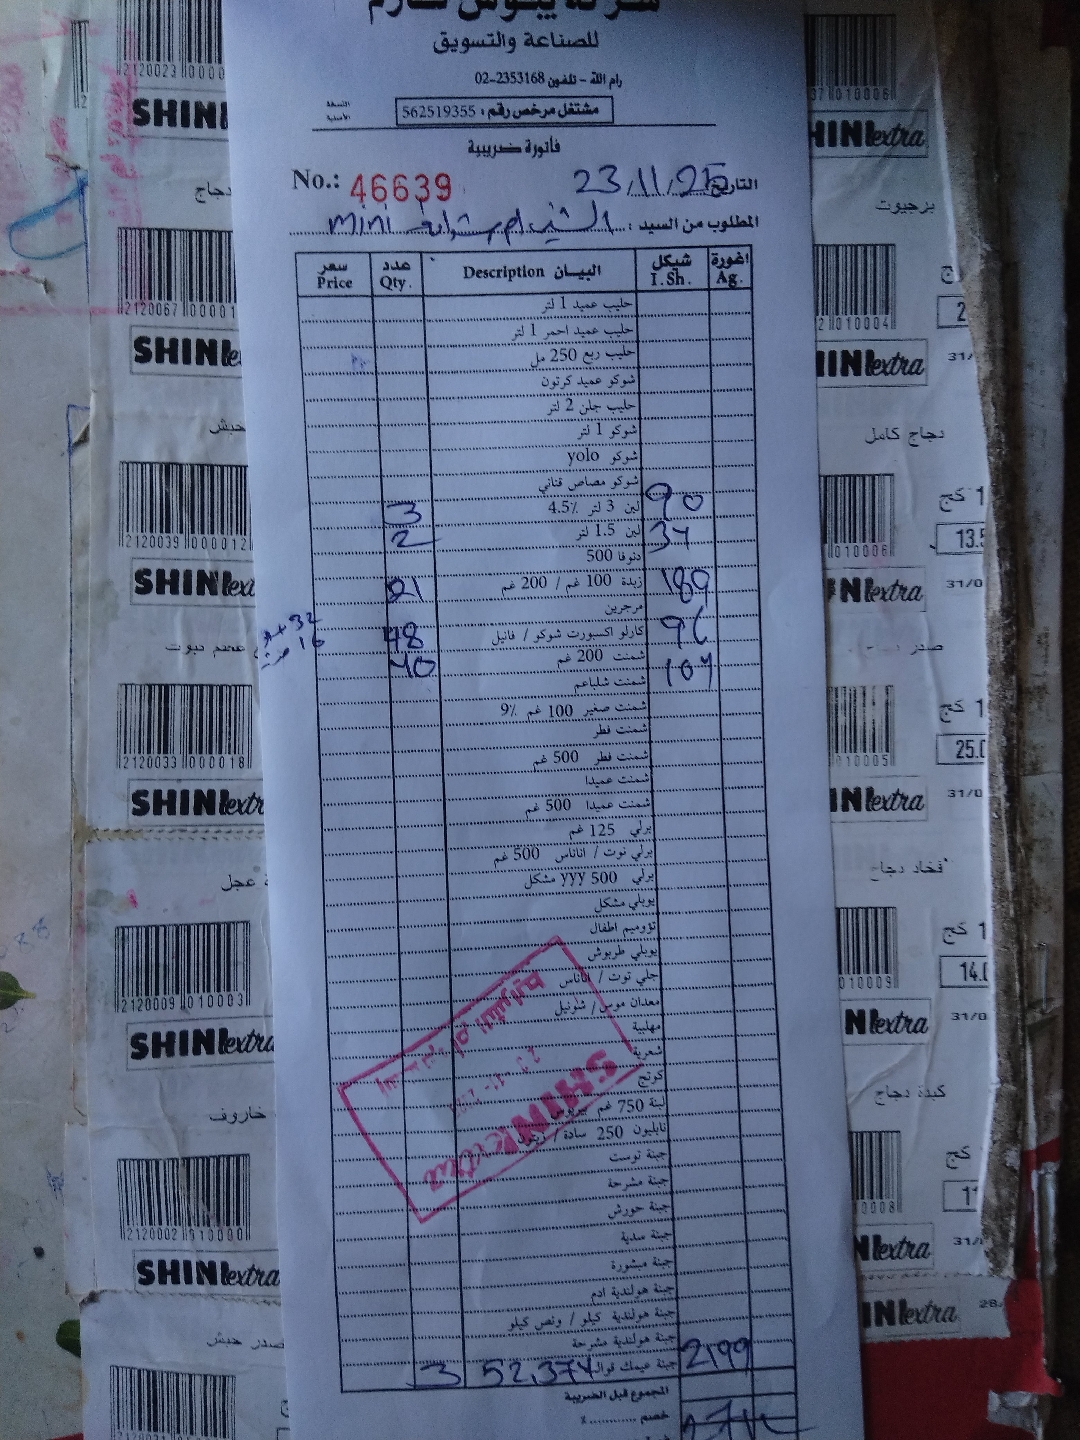 للصناعة والتسويق
رام الله - تلفون 02-2353168
مشتغل مرخص رقم: 562519355
النسخة الأصلية
فاتورة ضريبية
No.: 46639
التاريخ 23/11/25
المطلوب من السيد: mini
سعر Price عدد Qty. البيان Description شيكل I.Sh. اغورة Ag.
حليب عميد 1 لتر
حليب عميد احمر 1 لتر
حليب ربع 250 مل
شوكو عميد كرتون
حليب جلن 2 لتر
شوكو 1 لتر
شوكو yolo
شوكو مصاص قناني
3 لبن 3 لتر 4.5٪ 90
2 لبن 1.5 لتر 34
دنوفا 500
21 زبدة 100 غم / 200 غم 189
مرجرين
48 كارلو اكسبورت شوكو / فانيل 96
40 شمنت 200 غم 104
شمنت شلباعم
شمنت صغير 100 غم 9٪
شمنت فطر
شمنت فطر 500 غم
شمنت عميدا
شمنت عميدا 500 غم
برلي 125 غم
برلي توت / اناناس 500 غم
برلي 500 yyy مشكل
يوبلي مشكل
تؤوميم اطفال
يوبلي طربوش
جلي توت / اناناس
معدان موس / شونيل
مهلبية
شعرية
كوتج
لبنة 750 غم
نابليون 250 سادة / زيتون
جبنة توست
جبنة مشرحة
جبنة حورش
جبنة سدية
جبنة مبشورة
جبنة هولندية ادم
جبنة هولندية كيلو / ونص كيلو
جبنة هولندية مشرحة
3 52,374 جبنة عيمك فوال 2199
المجموع قبل الضريبة
خصم ............ ٪
SHINI extra
2120023 0000
SHINI
دجاج
2120067 00001
SHINI
حبش
2120039 000012
SHINI ext
2120033 000018
SHINI extr
عجل
2120009 010003
SHINI extra
خاروف
2120002 010000
SHINI extra
صدر حبش
010006
HINI extra
برجيوت
2 010004
31/
INI extra
دجاج كامل
1 كج
13.5
010006
31/0
NI extra
صدر
1 كج
25.0
010005
31/0
INI extra
فخاد دجاج
كج 1
14.0
010009
31/0
NI extra
كبدة دجاج
كج
11
010008
31/
NI extra
28.
INI extra